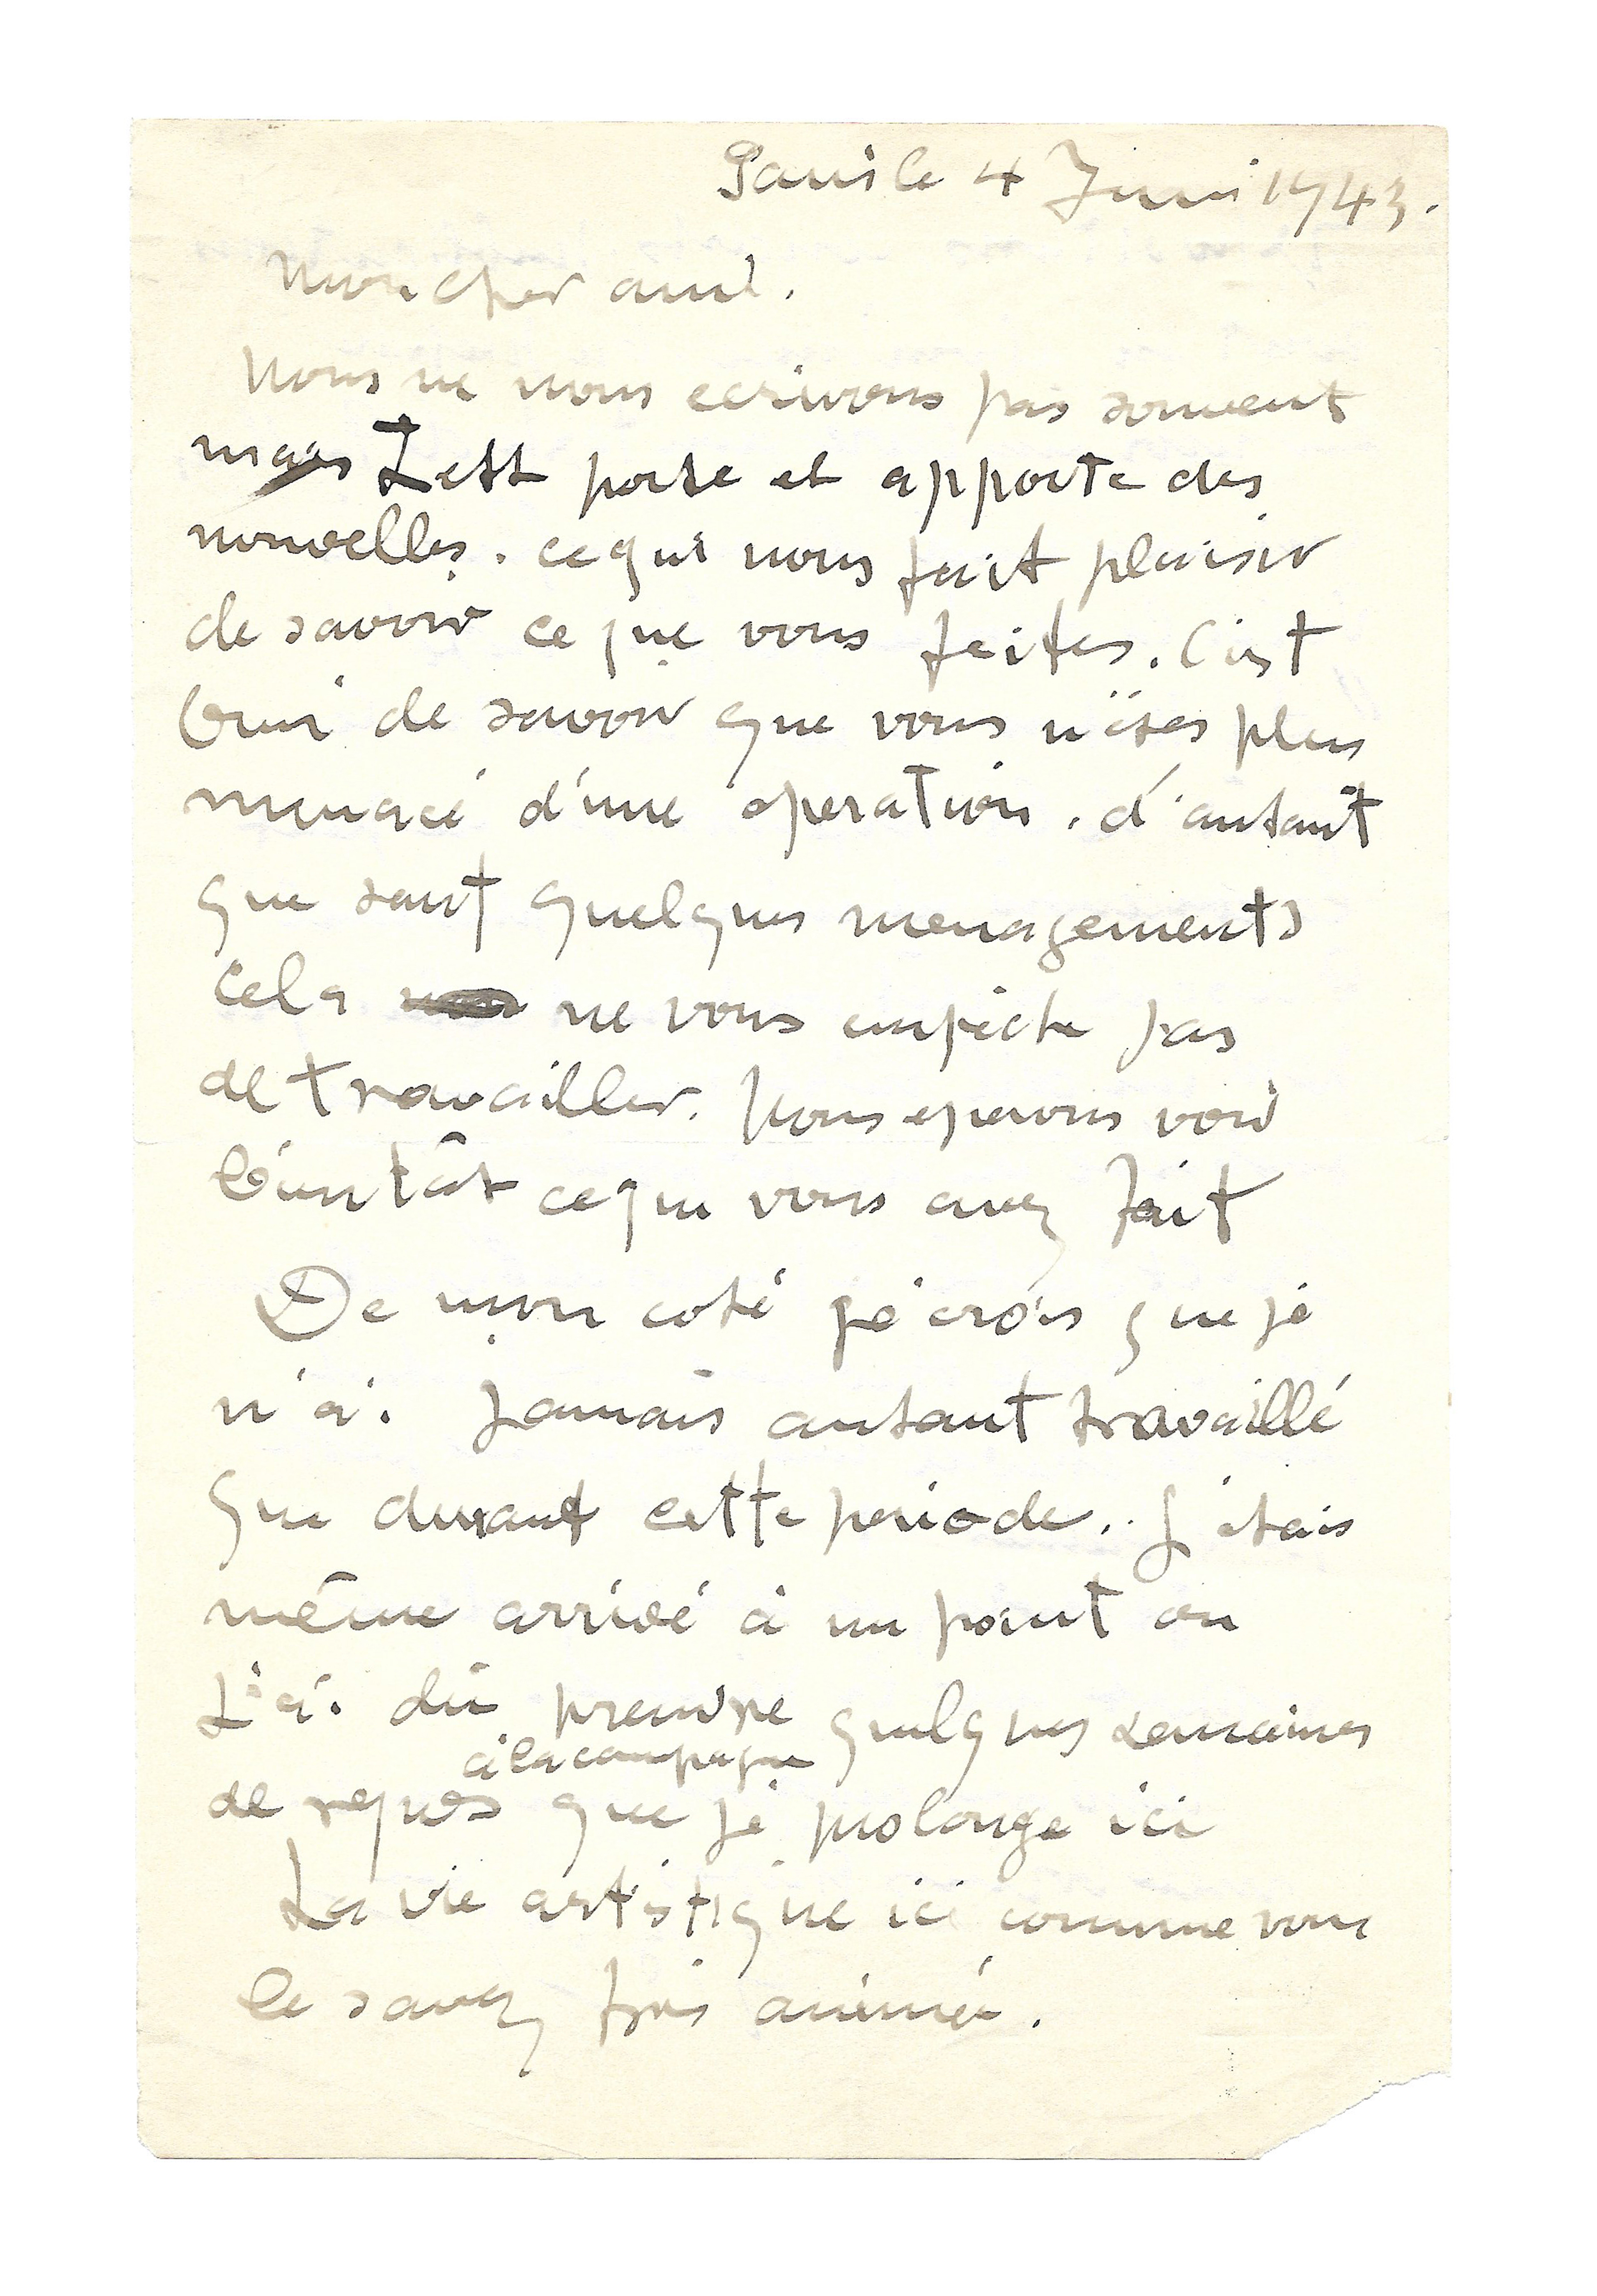 Paris le 4 Juin 1943.
Mon cher ami.
Nous ne nous ecrivons pas souvent
mais porte et apporte des
nouvelles. ce qui nous fait plaisir
de savoir ce que vous faites. C'est
de savoir que vous n'êtes plus
menacé d'une operation. d'autant
que sauf quelques menagements
cela ne vous empêche pas
de travailler. Nous esperons voir
bientôt ce que vous avez fait
De mon coté je crois que je
n'ai jamais autant travaillé
que durant cette periode.. J'étais
même arrivé à un point ou
j'ai dû prendre quelques semaines
à la campagne
de repos que je prolonge ici
La vie artistique ici comme vous
le savez très animée.